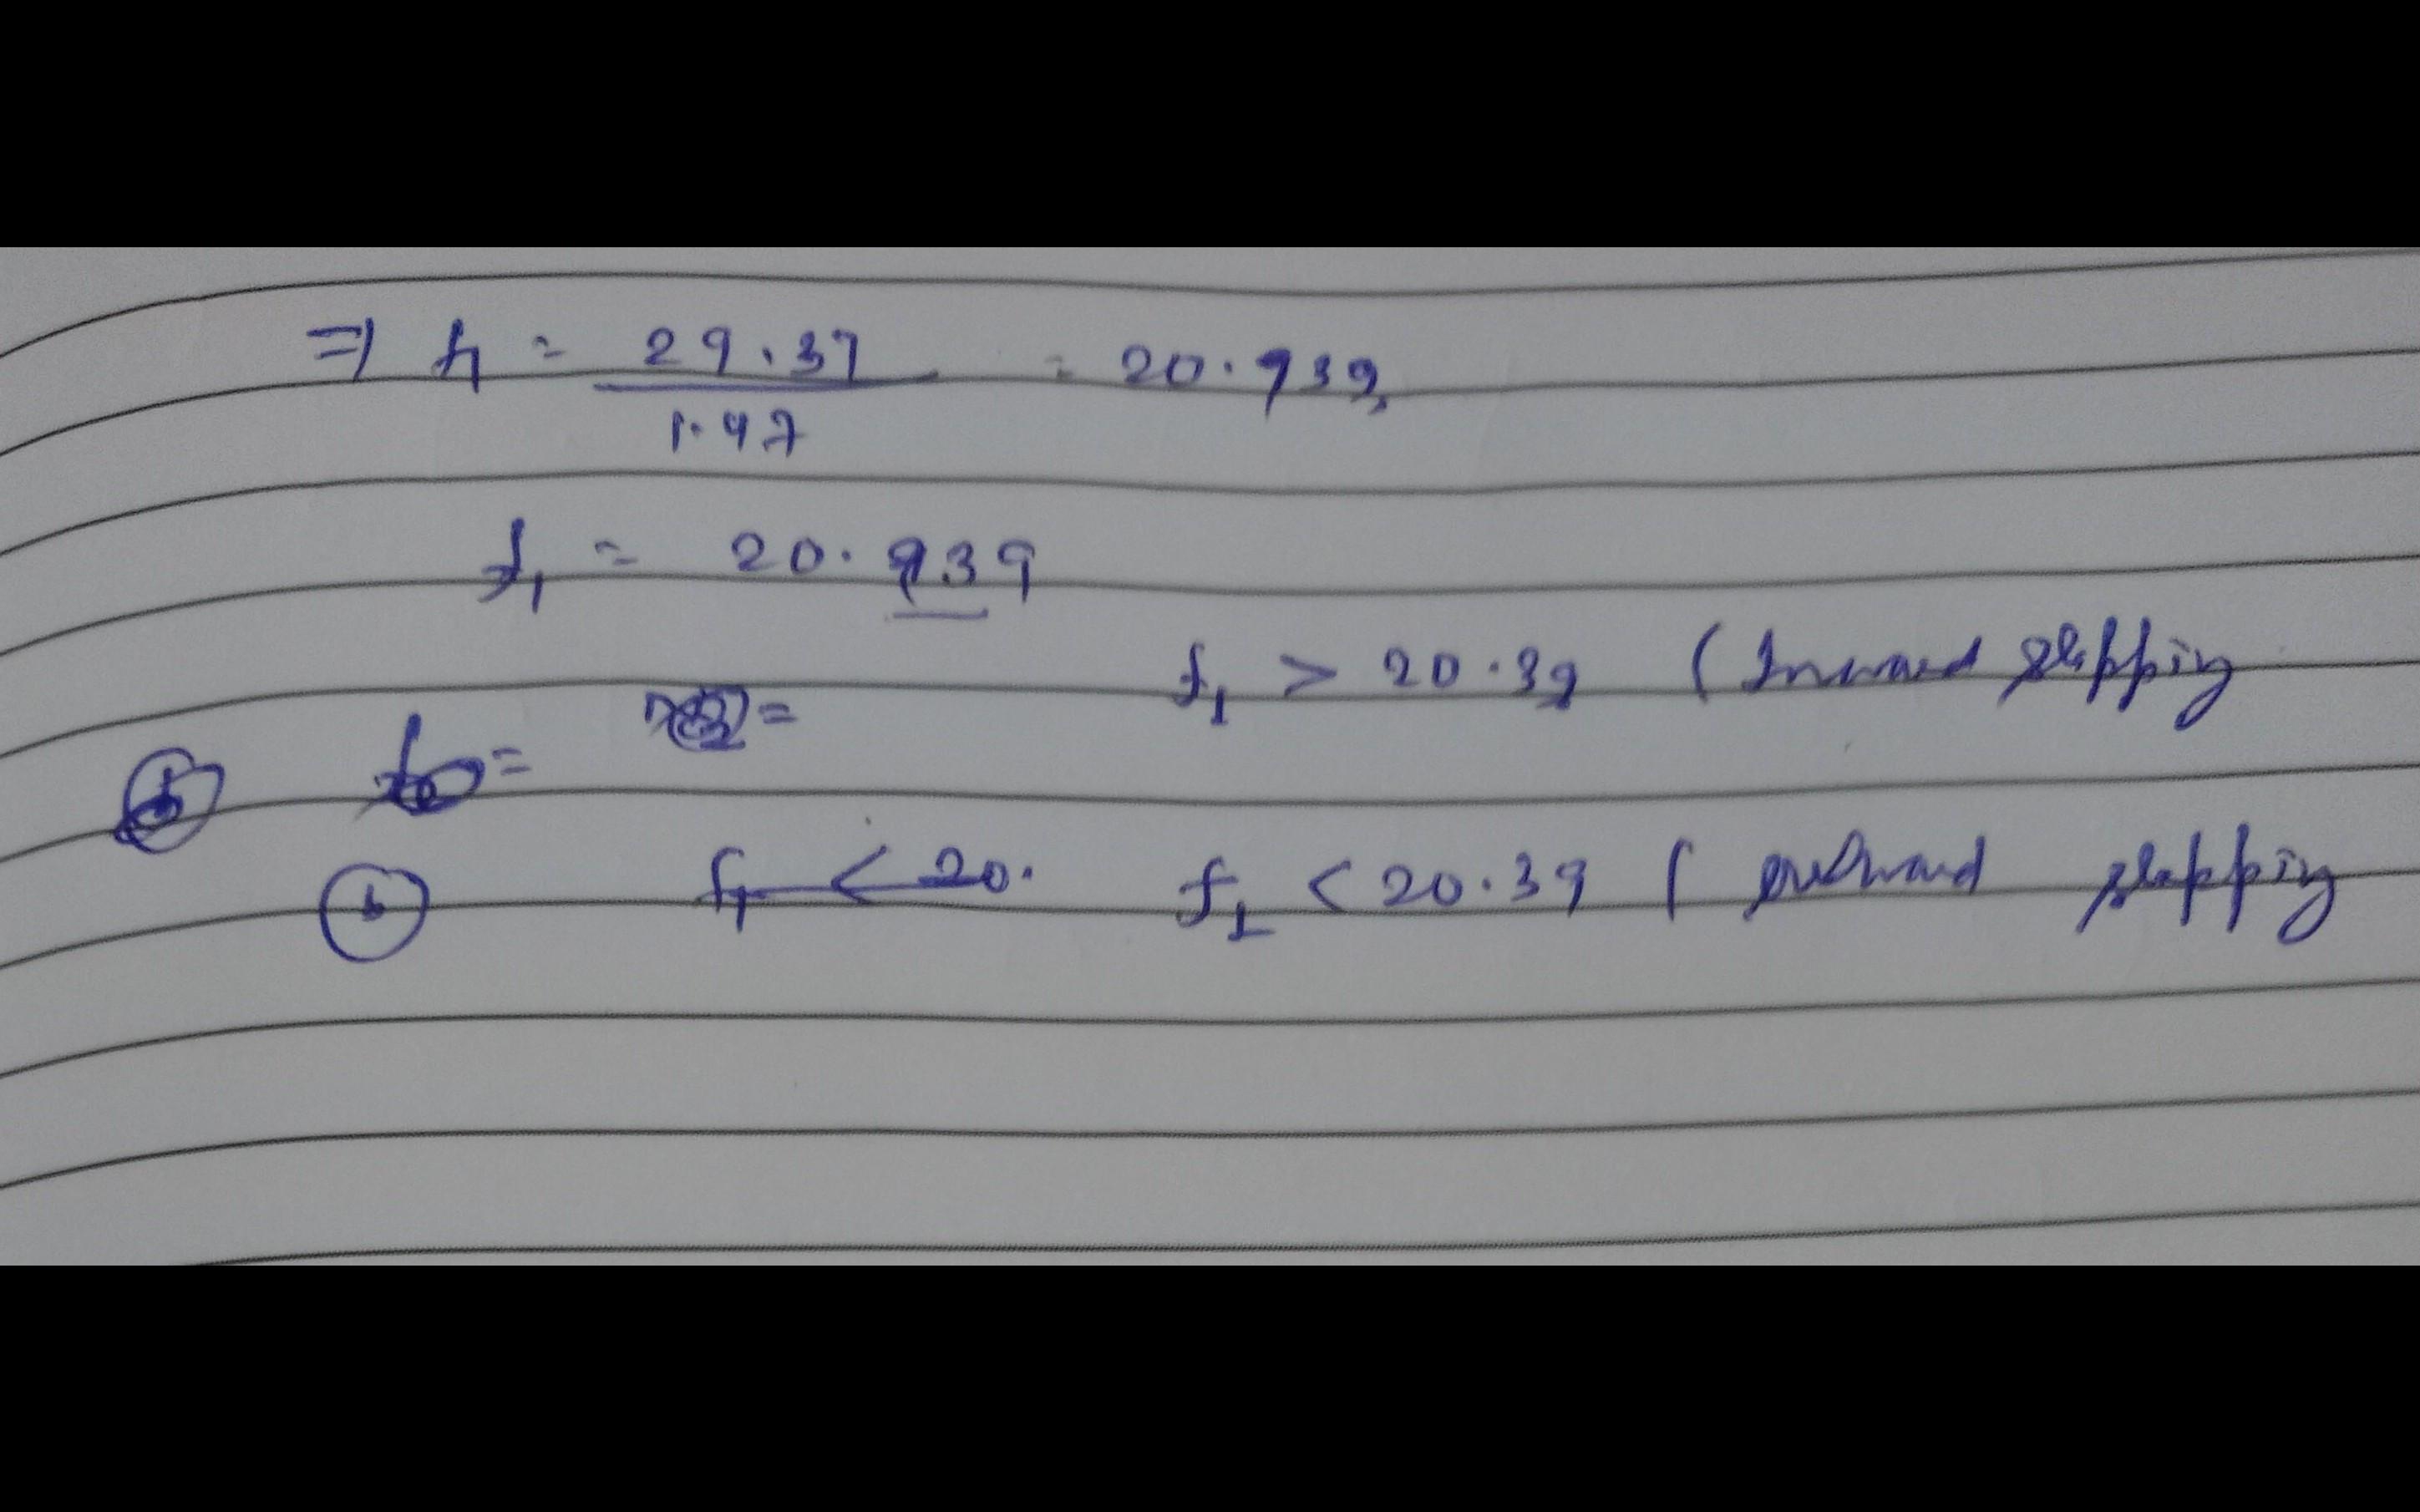 ⇒ f₁ = 29.37 / 1.47 = 20.939
f₁ = 20.939
f₁ > 20.39 ( Inward slipping
=
=
(b) f₁ < 20. f₁ < 20.39 ( outward slipping